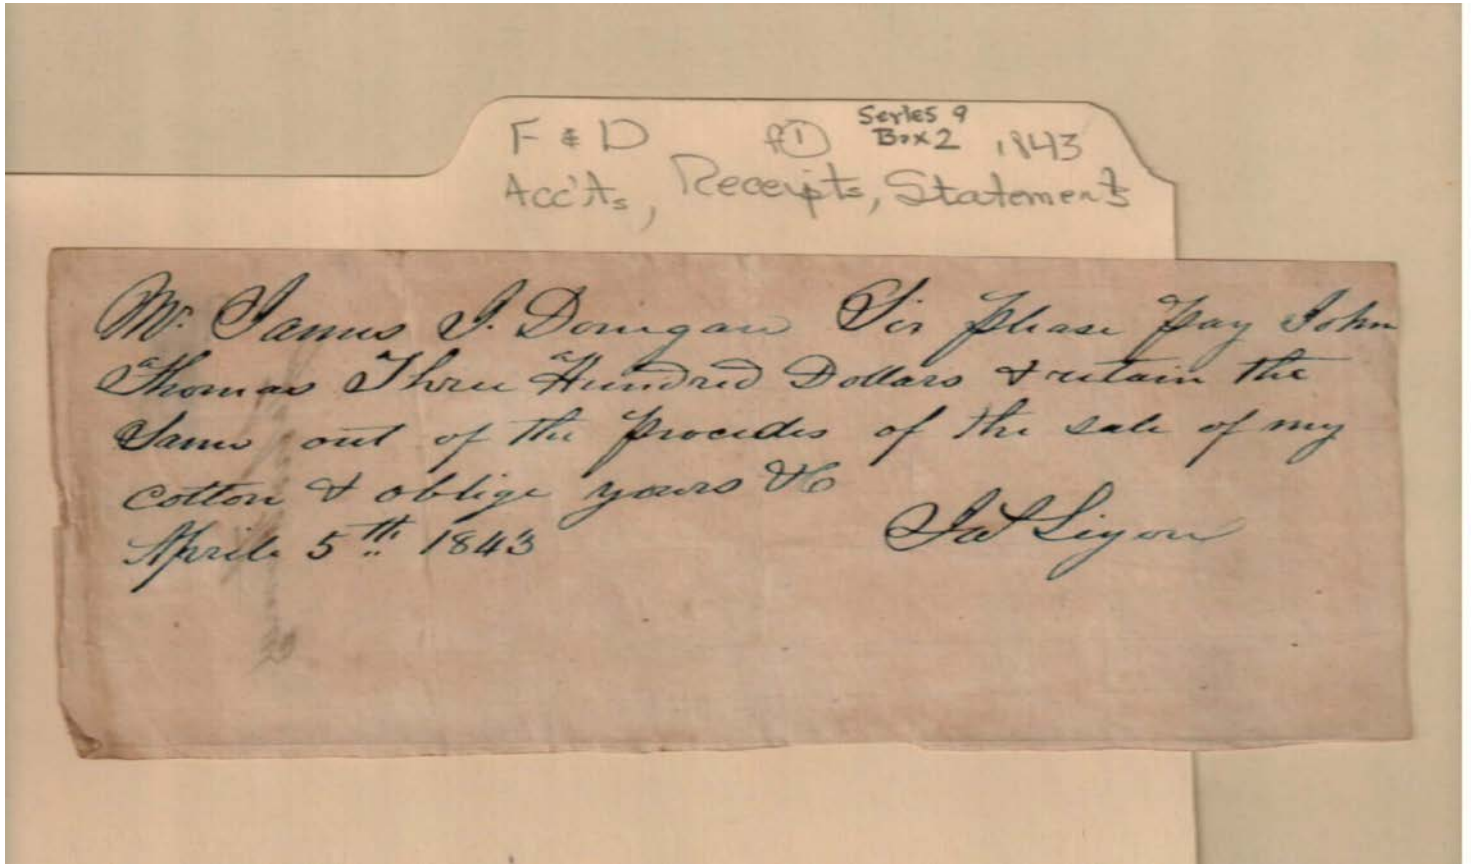 F & D f① Series 9 Box 2 1843
Acc'ts, Receipts, Statements
Mr. James J. Donegan Sir Please Pay John
Thomas Three Hundred Dollars & retain the
Same out of the procedes of the sale of my
cotton & oblige yours &c
Aprile 5th 1843 Jas Ligon